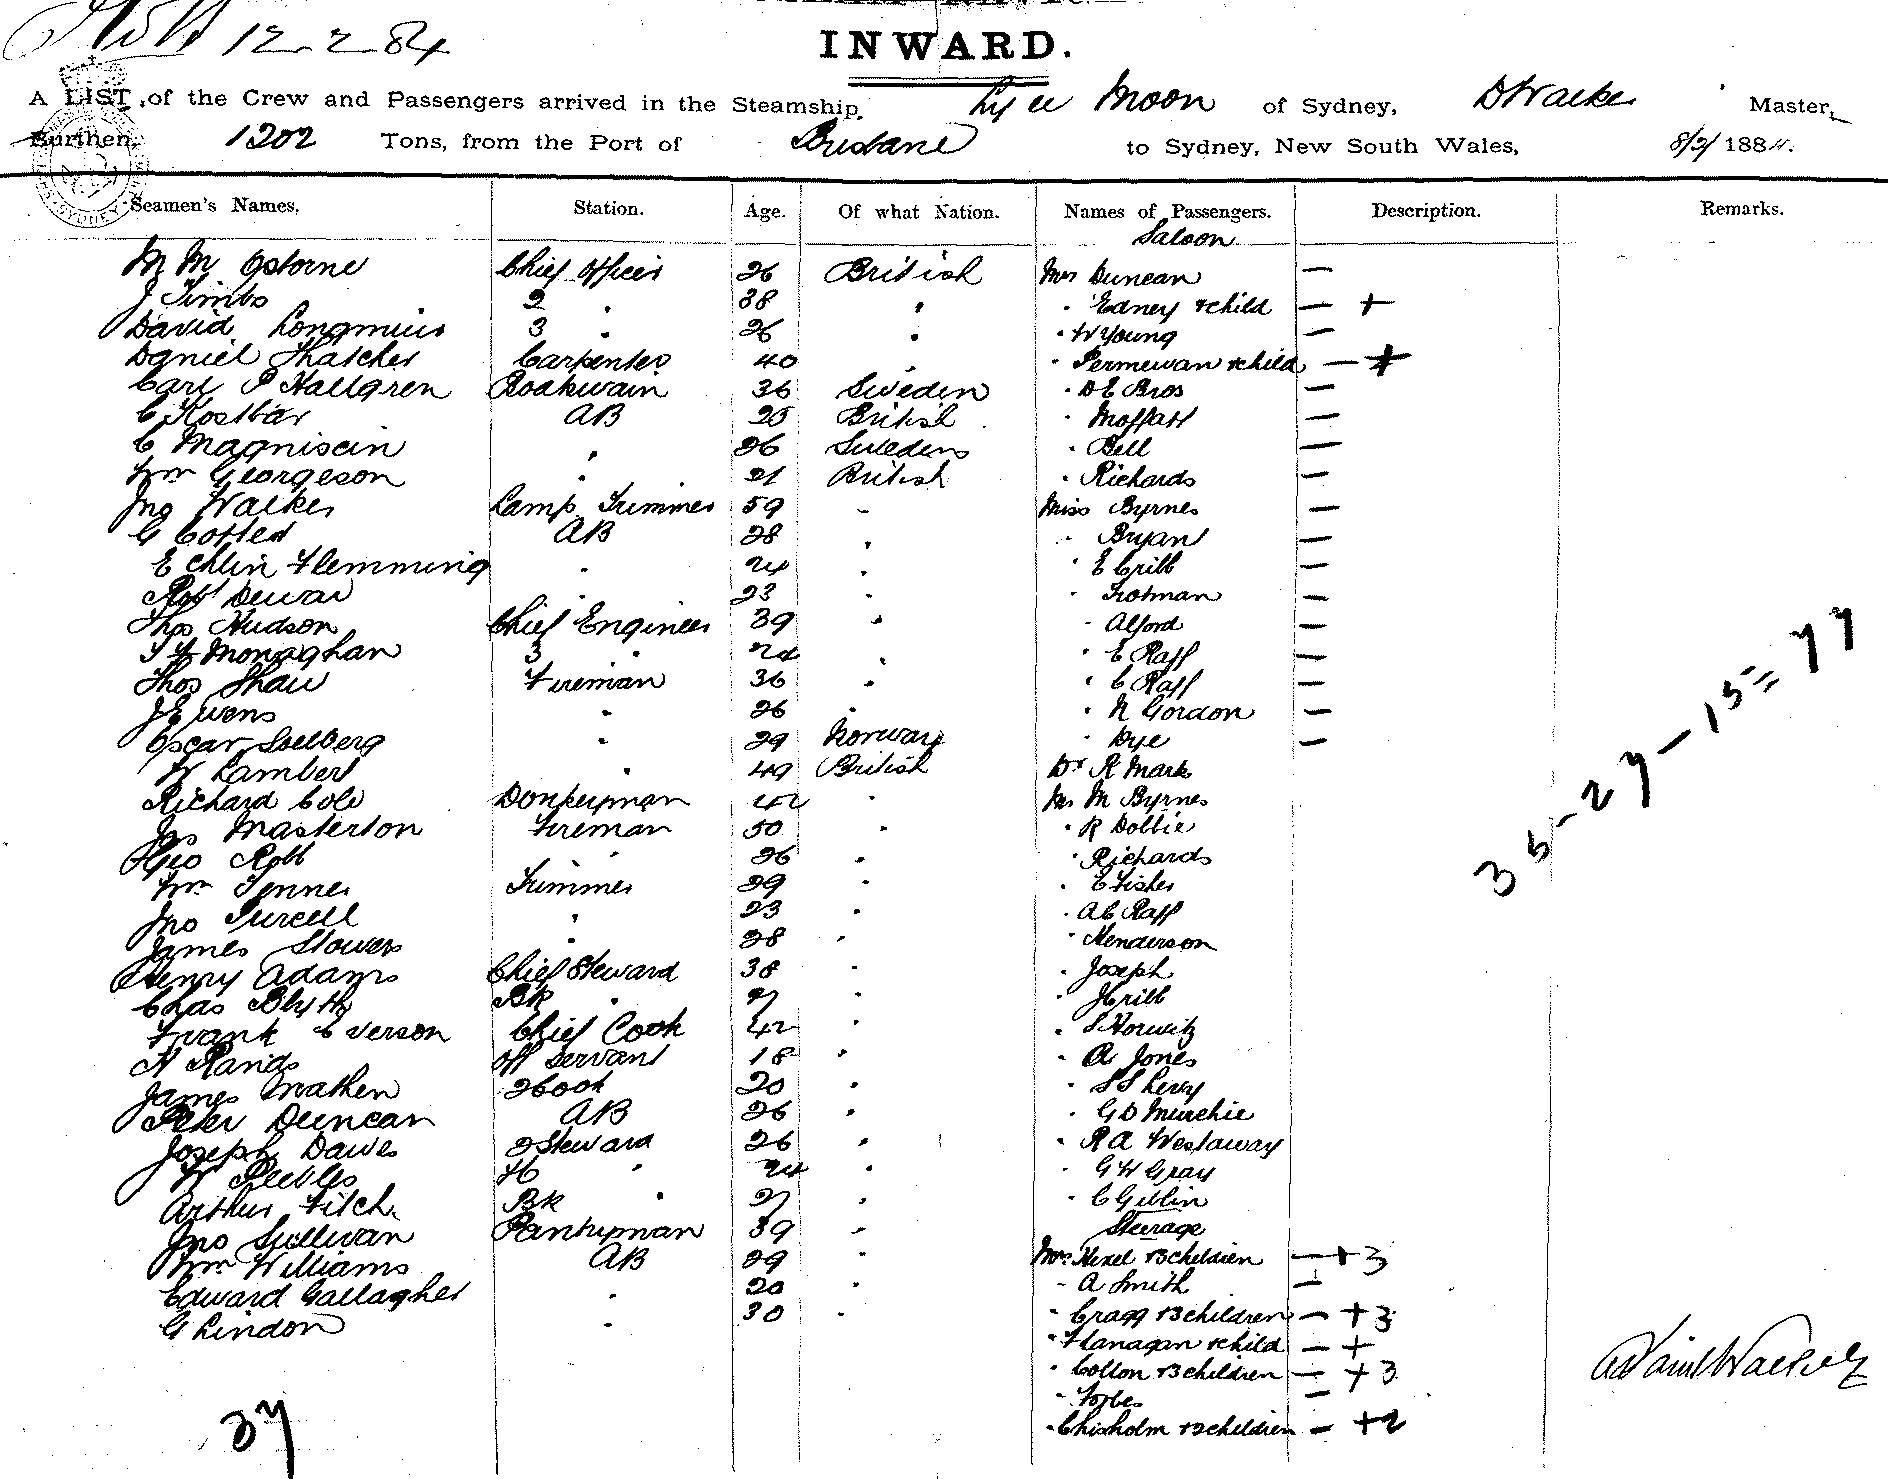 12.2.84
INWARD.
A LIST, of the Crew and Passengers arrived in the Steamship, Ly ee Moon of Sydney, D Walker Master,
Burthen, 1202 Tons, from the Port of Brisbane to Sydney, New South Wales, 8/2/ 1884.
Seamen's Names. Station. Age. Of what Nation. Names of Passengers. Description. Remarks.
Saloon
M M Osborne Chief Officer 26 British Mrs Duncan —
J Timbs 2 " 38 " " Edney & child — +
David Longmuir 3 " 26 " " W Young —
Daniel Thatcher Carpenter 40 " Permewan & child — +
Carl P Hallgren Boatswain 36 Sweden " D E Bros —
C Kostbar AB 25 British " Moffatt —
C Magnisein " 26 Sweden " Bell —
Wm Georgeson " 21 British " Richards —
Jno Walker Lamp Trimmer 59 " Miss Byrnes —
G Cotter AB 28 " " Bryan —
Echlin Flemming " 24 " " E Cribb —
Robt Dewar 23 " " Trotman —
Thos Hudson Chief Engineer 39 " " Alford —
T F Monaghan 3 " 24 " " E Raff —
Thos Shaw Fireman 36 " " C Raff —
J Ewens " 26 " " N Gordon —
Oscar Soelberg " 29 Norway " Dye —
W Lambert " 49 British Dr R Mark
Richard Cole Donkeyman 42 " Mr M Byrnes
Jas Masterton Fireman 50 " " R Dobbie
Geo Robb " 26 " " Richards
Wm Jenner Trimmer 29 " " E Fisher
Jno Purcell " 23 " " A C Raff
James Stower " 28 " " Henderson
Henry Adams Chief Steward 38 " " Joseph
Chas Blyth BK " 27 " " J Cribb
Frank C Verson Chief Cook 42 " " S Horwitz
A Rands Off Servant 18 " " A Jones
James Mathen 2 Cook 20 " " S S Levy
Peter Duncan AB 26 " " G D Murchie
Joseph Dawes 2 Steward 26 " " R A Westaway
W Peebles " 24 " " G W Gray
Arthur Fitch BK " 27 " " C Giblin
Jno Sullivan Pantryman 39 " Steerage
Wm Williams AB 29 " Mrs Hexel & 3 children — + 3
Edward Gallagher " 20 " " A Smith —
G Lindon " 30 " " Cragg & 3 children — + 3
" Flanagan & child — +
" Collon & 3 children — + 3
" Forbes —
" Chisholm & 2 children — + 2
37
35 – 27 – 15 = 77